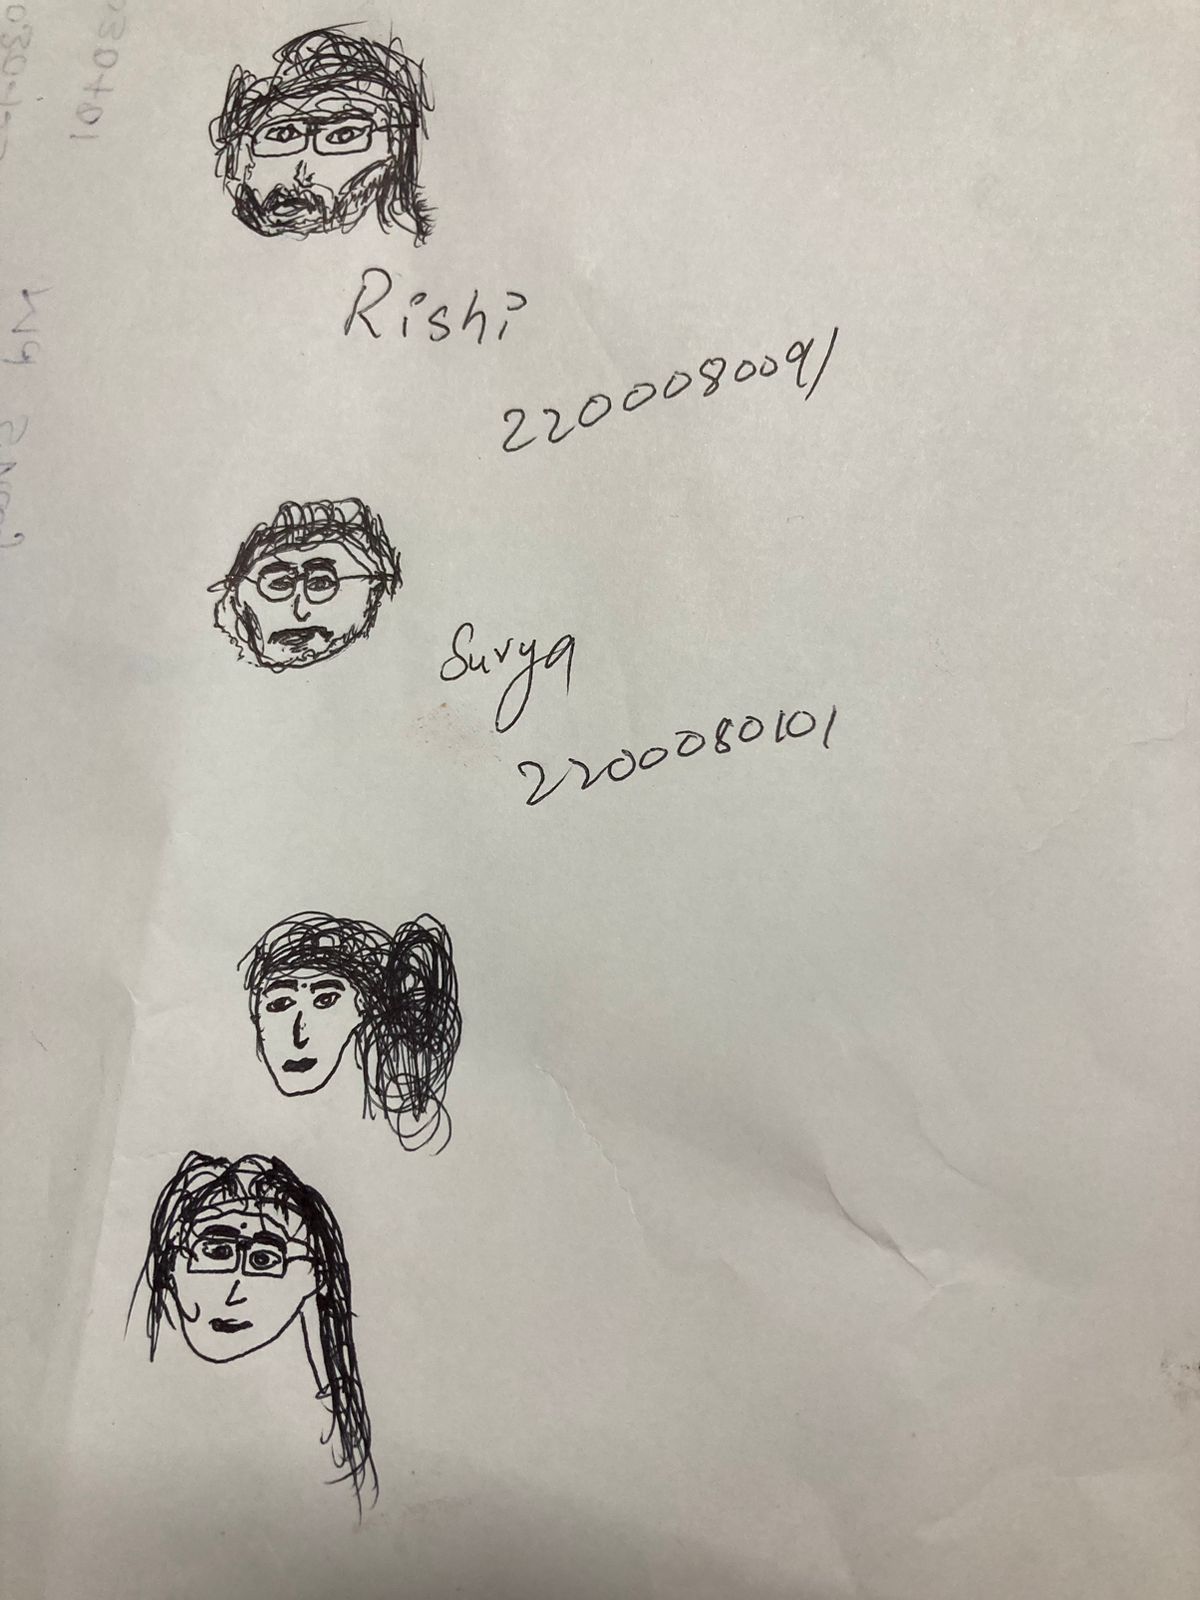 Rishi
2200080091
Surya
2200080101